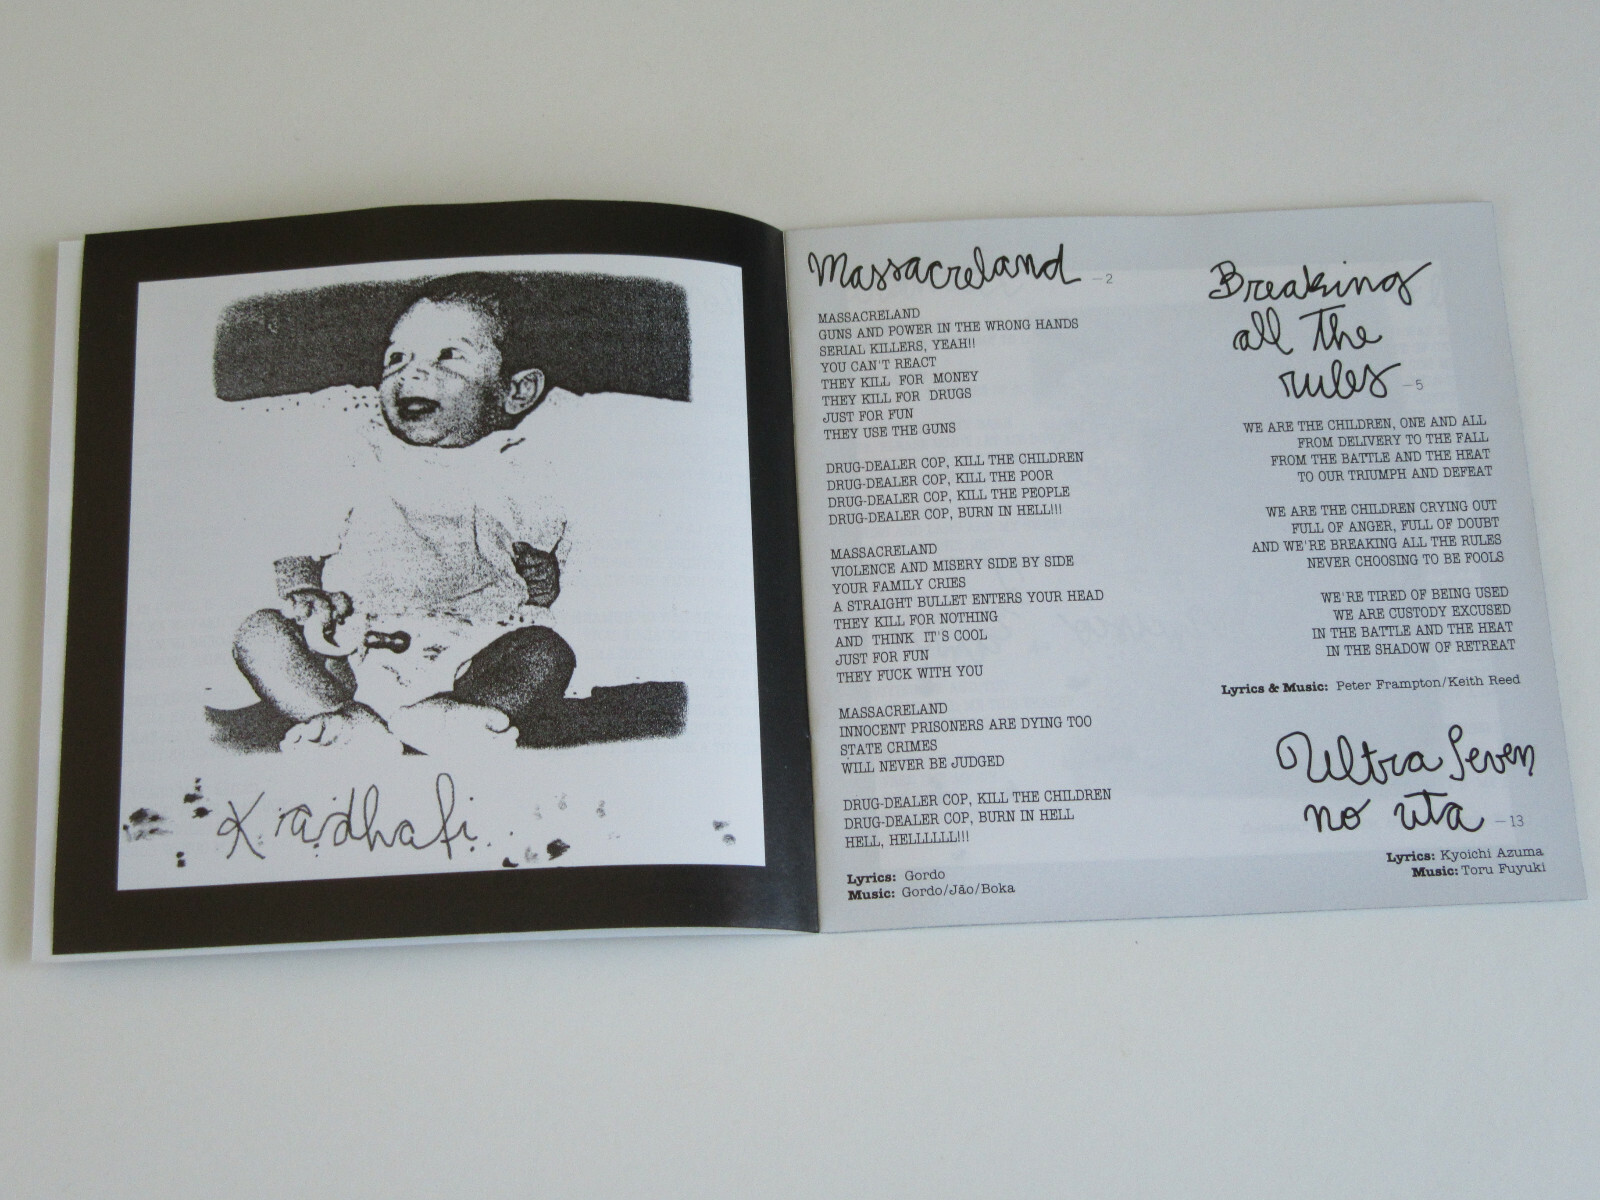 Kradhafi
Massacreland – 2
MASSACRELAND
GUNS AND POWER IN THE WRONG HANDS
SERIAL KILLERS, YEAH!!
YOU CAN'T REACT
THEY KILL FOR MONEY
THEY KILL FOR DRUGS
JUST FOR FUN
THEY USE THE GUNS
DRUG-DEALER COP, KILL THE CHILDREN
DRUG-DEALER COP, KILL THE POOR
DRUG-DEALER COP, KILL THE PEOPLE
DRUG-DEALER COP, BURN IN HELL!!!
MASSACRELAND
VIOLENCE AND MISERY SIDE BY SIDE
YOUR FAMILY CRIES
A STRAIGHT BULLET ENTERS YOUR HEAD
THEY KILL FOR NOTHING
AND THINK IT'S COOL
JUST FOR FUN
THEY FUCK WITH YOU
MASSACRELAND
INNOCENT PRISONERS ARE DYING TOO
STATE CRIMES
WILL NEVER BE JUDGED
DRUG-DEALER COP, KILL THE CHILDREN
DRUG-DEALER COP, BURN IN HELL
HELL, HELLLLLL!!!
Lyrics: Gordo
Music: Gordo/Jão/Boka
Breaking
all The
rules – 5
WE ARE THE CHILDREN, ONE AND ALL
FROM DELIVERY TO THE FALL
FROM THE BATTLE AND THE HEAT
TO OUR TRIUMPH AND DEFEAT
WE ARE THE CHILDREN CRYING OUT
FULL OF ANGER, FULL OF DOUBT
AND WE'RE BREAKING ALL THE RULES
NEVER CHOOSING TO BE FOOLS
WE'RE TIRED OF BEING USED
WE ARE CUSTODY EXCUSED
IN THE BATTLE AND THE HEAT
IN THE SHADOW OF RETREAT
Lyrics & Music: Peter Frampton/Keith Reed
Ultra Seven
no uta – 13
Lyrics: Kyoichi Azuma
Music: Toru Fuyuki